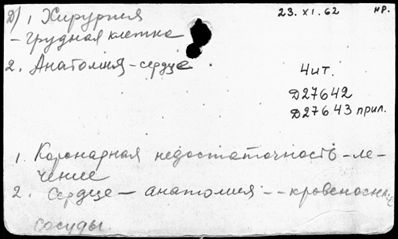 д) 1 Хирургия 23. XI. 62 нр.
- грудная клетка
2. Анатомия - сердце
Чит.
Д27642
Д27643 прил.
1. Коронарная недостаточность - ле-
чение
2. Сердце - анатомия - - кровеносные
сосуды.